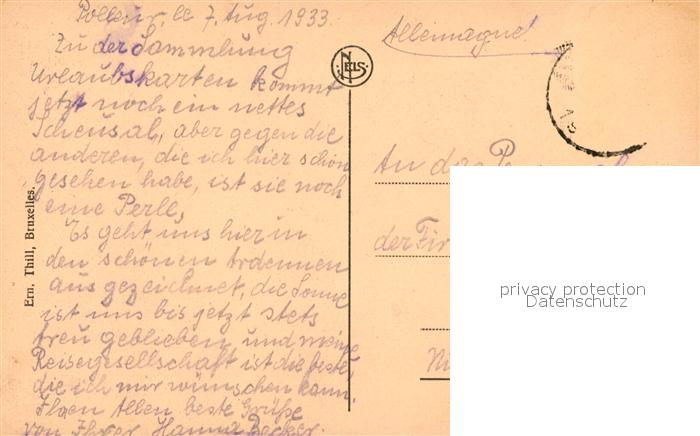 Polleur, le 7. Aug. 1933.
Zu der Sammlung
Urlaubskarten kommt
jetzt noch ein nettes
Scheusal, aber gegen die
anderen, die ich hier schon
gesehen habe, ist sie noch
eine Perle,
Es geht uns hier in
den schönen Ardennen
ausgezeichnet, die Sonne
ist uns bis jetzt stets
treu geblieben und meine
Reisegesellschaft ist die beste,
die ich mir wünschen kann.
Ihnen Allen beste Grüße
von Ihrer Hanna Becker.
Ern. Thill, Bruxelles.
NELS
Allemagne!
An das
der Fir
privacy protection
Datenschutz